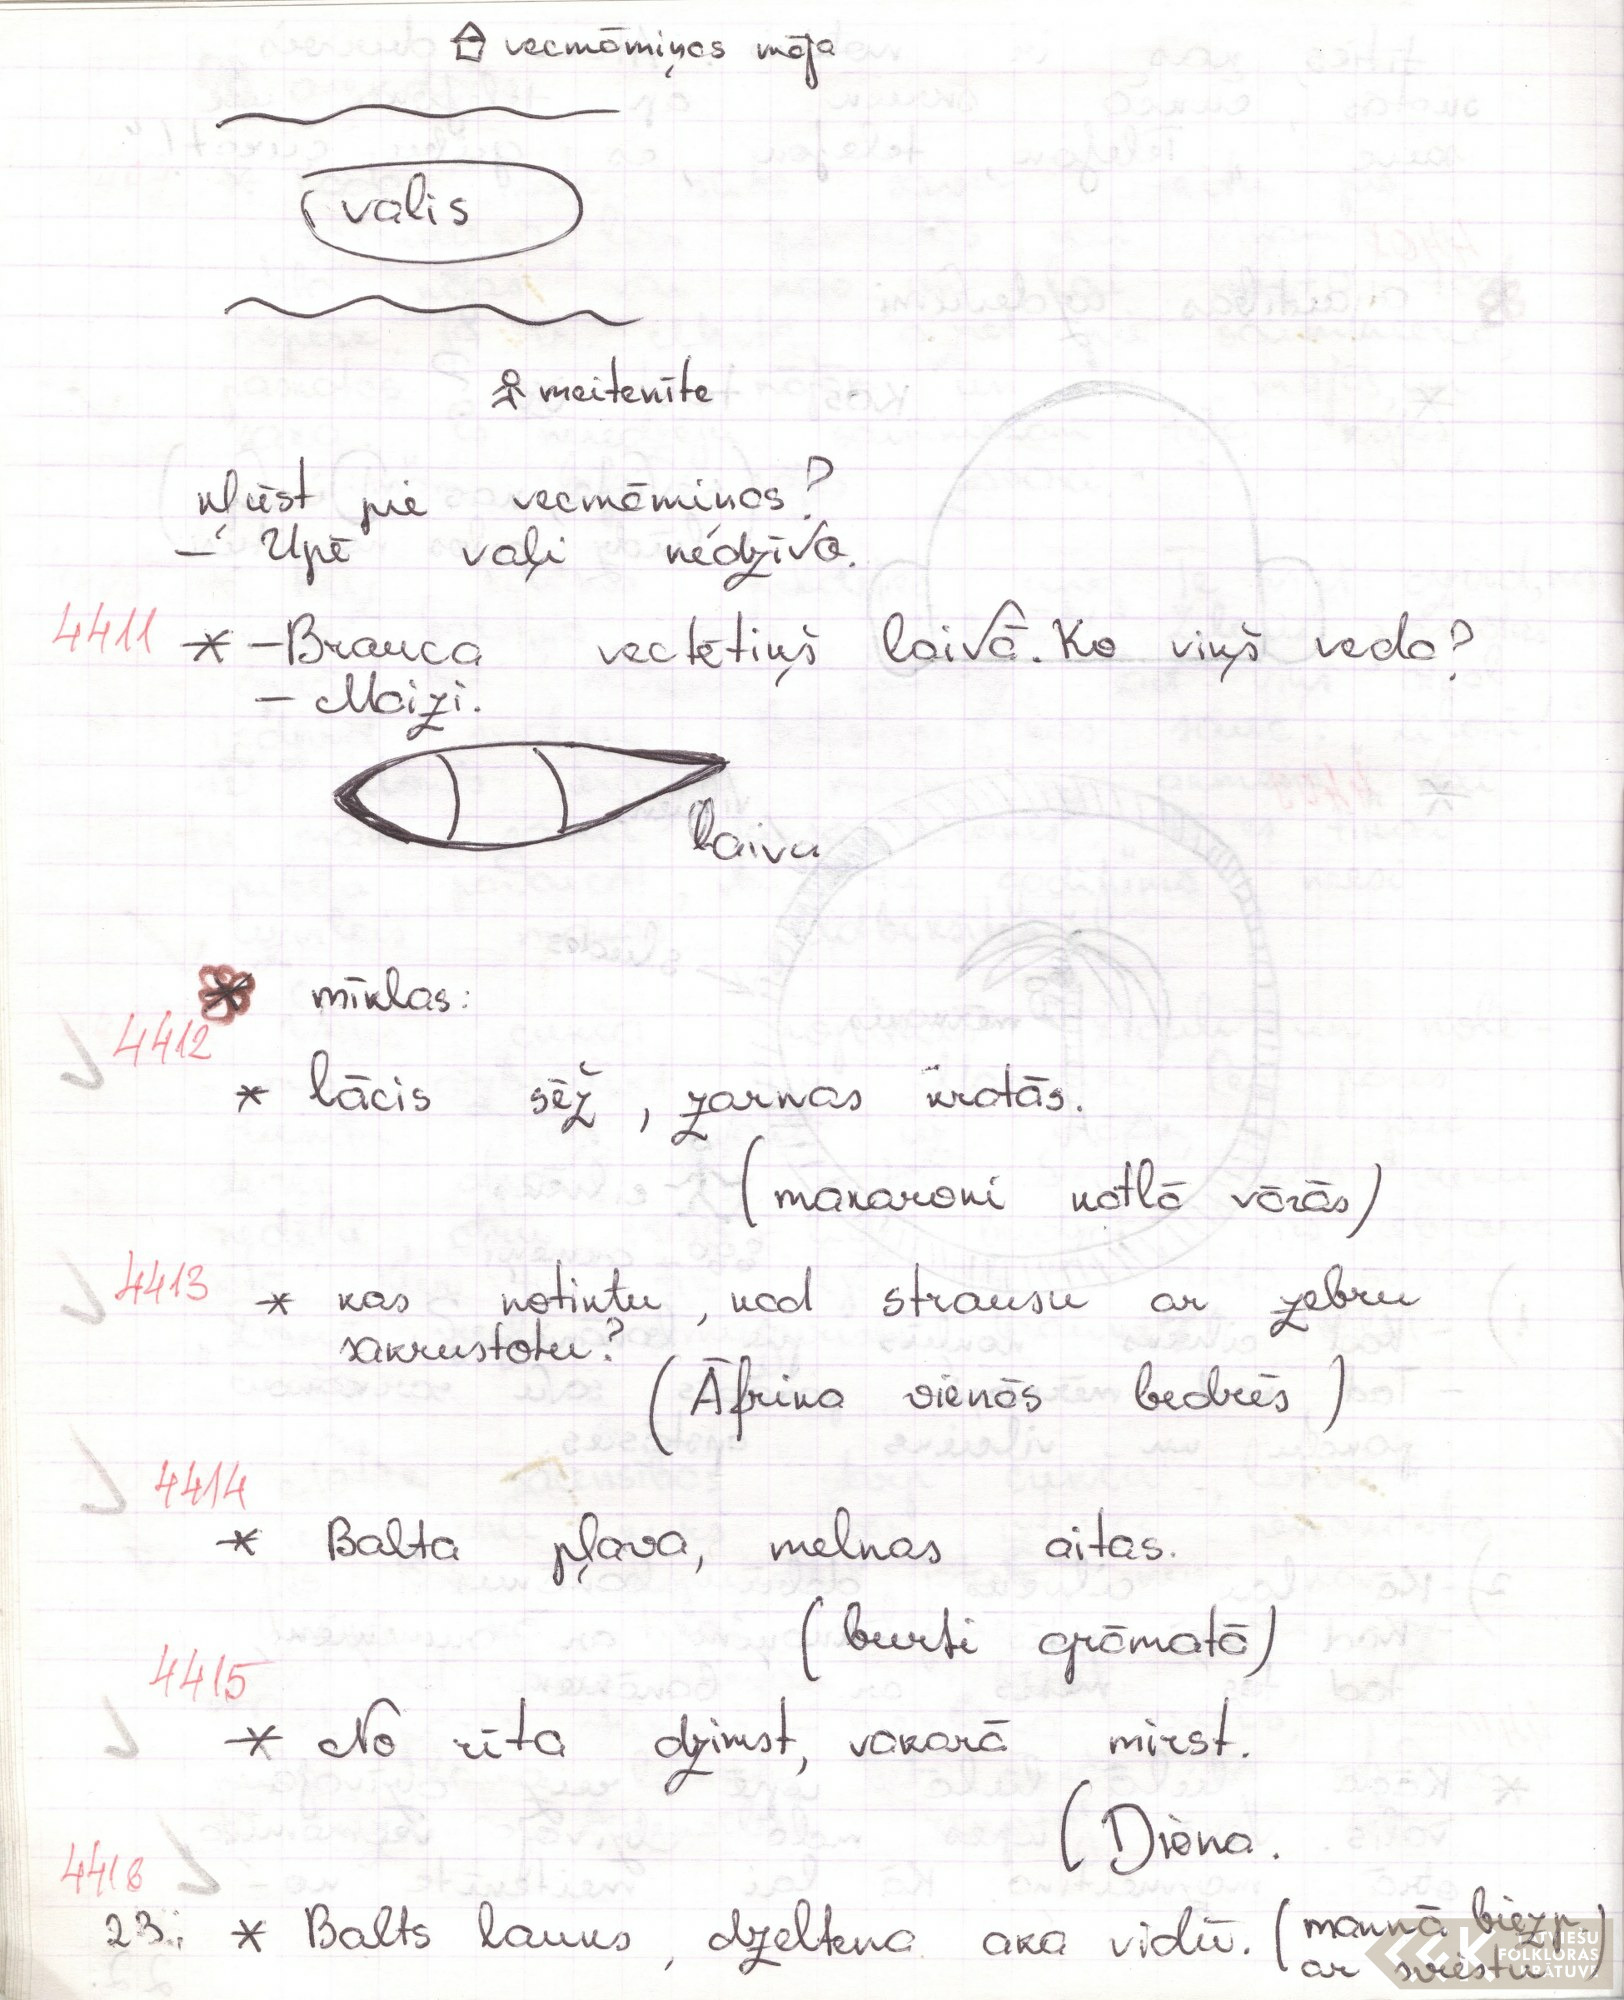 vecmāmiņas māja
valis
meitenīte
kļūst pie vecmāmiņas?
– Upē vaļi nedzīvo.
4411 * – Brauca vectētiņš laivā. Ko viņš veda?
– Maizi.
laiva
* mīklas:
4412
* lācis sēž, zarnas kratās.
(makaroni katlā vārās)
4413 * kas notiktu, kad strausu ar zebru
sakrustotu?
(Āfrika vienās bedrēs)
4414
* Balta pļava, melnas aitas.
(burti grāmatā)
4415
* No rīta dzimst, vakarā mirst.
(Diena.
4416
23. * Balts lauks, dzeltena aka vidū. (mannā biezp.
ar sviestu)
LATVIEŠU
FOLKLORAS
KRĀTUVE